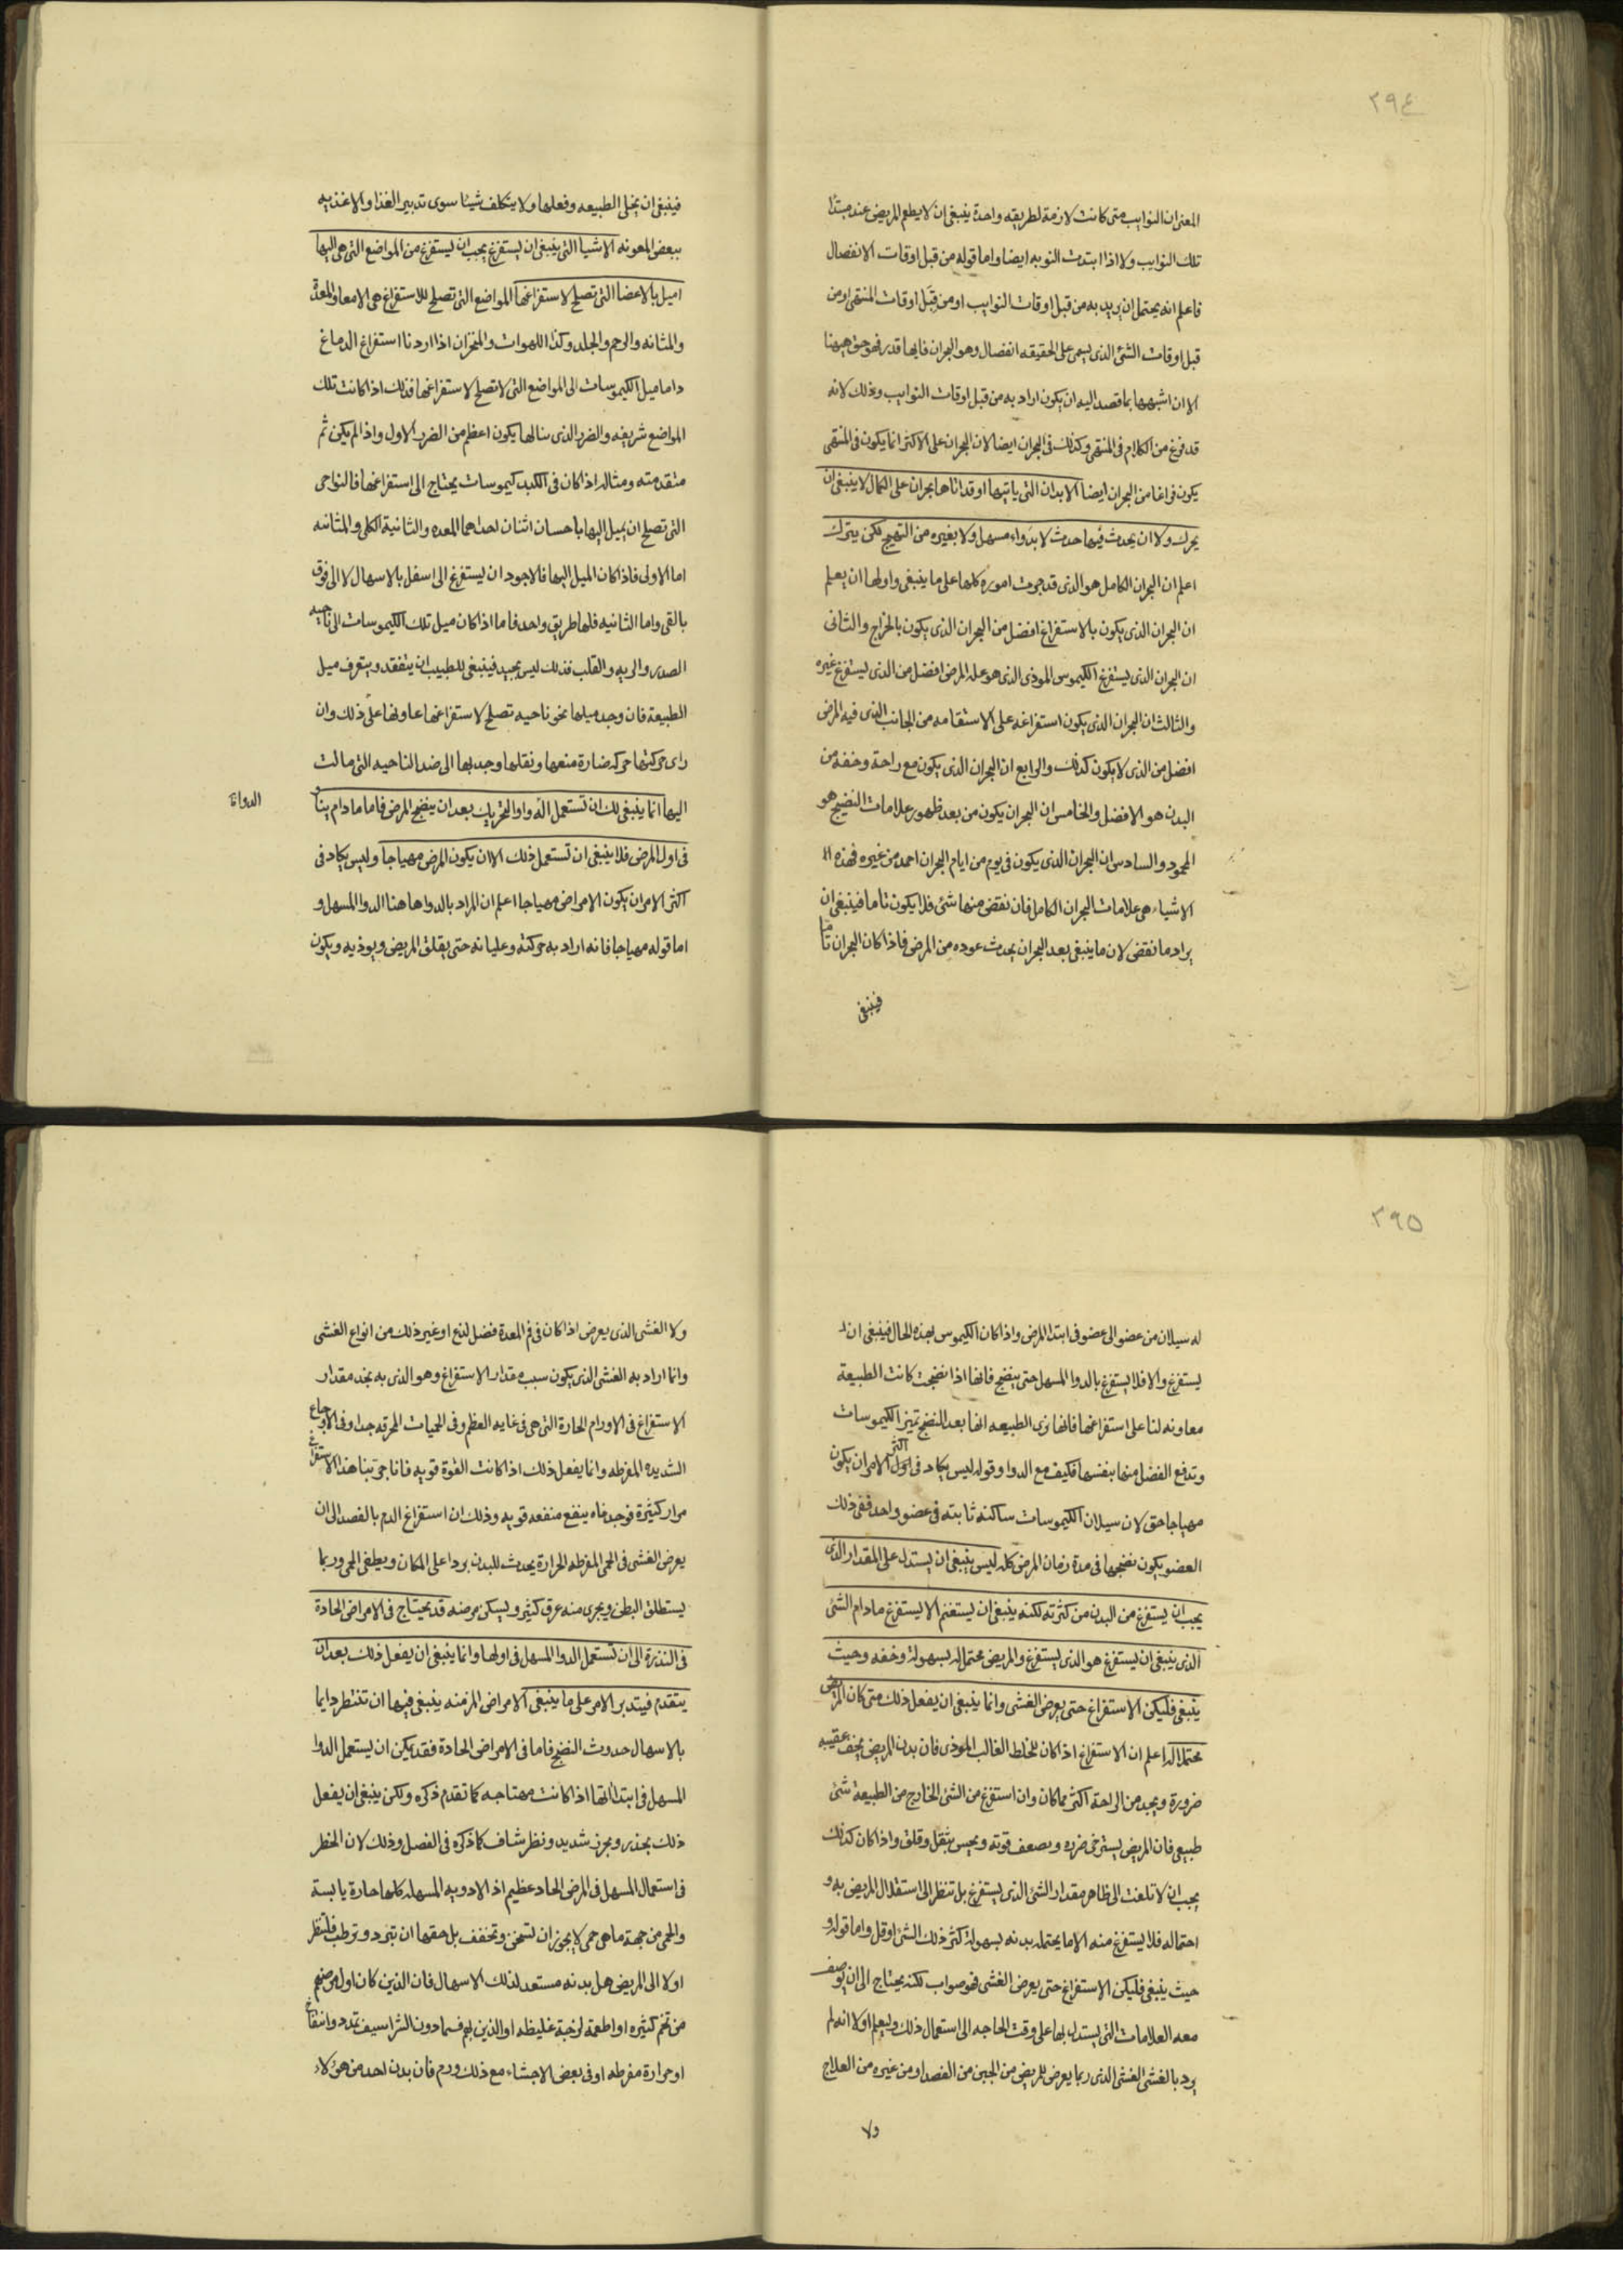 ٢٩٤
المعنى ان النوايب متى كانت لازمة لطريقه واحدة ينبغى ان لا يطعم المريض عند مبتدا
تلك النوايب ولا اذا ابتدت النوبه ايضا واما قوله من قبل اوقات الانفصال
فاعلم انه يحتمل ان يريد به من قبل اوقات النوايب او من قبل اوقات المنتهى او من
قبل اوقات الشئ الذى يسمى على الحقيقه انفصال وهو البحران فايها قدر فهو حق ههنا
الا ان اشبهها بما قصد اليه ان يكون اراد به من قبل اوقات النوايب وذلك لانه
قد فرغ من الكلام فى المنتهى وكذلك فى البحران ايضا لان البحران على الاكثر انما يكون فى المنتهى
يكون فراغا من البحران ايضا الابدان التى ياتيها او قد اتاها بحران على الكمال لا ينبغى ان
يحرك ولا ان يحدث فيها حدث لا بدواء مسهل ولا بغيره من التهيج لكن يترك
اعلم ان البحران الكامل هو الذى قد جرت اموره كلها على ما ينبغى واولها ان يعلم
ان البحران الذى يكون بالاستفراغ افضل من البحران الذى يكون بالخراج والثانى
ان البحران الذى يستفرغ الكيموس الموذى الذى هو علة المرض افضل من الذى يستفرغ غيره
والثالث ان البحران الذى يكون استفراغه على الاستقامه من الجانب الذى فيه المرض
افضل من الذى لا يكون كذلك والرابع ان البحران الذى يكون مع راحة وخفه من
البدن هو الافضل والخامس ان البحران يكون من بعد ظهور علامات النضيج هو
المحمود والسادس ان البحران الذى يكون فى يوم من ايام البحران احمد من غيره فهذه الا
الاشياء هى علامات البحران الكامل فان نقض منها شئ فلا يكون تاما فينبغى ان
يراد ما نقض لان ما ينبغى بعد البحران يحدث عوده من المرض فاذا كان البحران تاما
فينبغى
فينبغى ان يخلى الطبيعه وفعلها ولا يتكلف شيئا سوى تدبير الغذا والاغذيه
ببعض المعونه الاشيا التى ينبغى ان يستفرغ يجب ان يستفرغ من المواضع التى هى اليها
اميل بالاعضا التى تصلح لاستفراغها المواضع التى تصلح للاستفراغ هى الامعا والمعدة
والمثانه والرحم والجلد وكذا اللهوات والمنخران اذا اردنا استفراغ الدماغ
واما ميل الكيموسات الى المواضع التى لا تصلح لاستفراغها فذلك اذا كانت تلك
المواضع شريفه والضرر الذى ينالها يكون اعظم من الضرر الاول واذا لم يكن ثم
متقدمته ومثاله اذا كان فى الكبد كيموسات يحتاج الى استفراغها فالنواحى
التى تصلح ان يميل اليها باحسان اثنان احداهما المعده والثانية الكلى والمثانه
اما الاولى فاذا كان الميل اليها فالاجود ان يستفرغ الى اسفل بالاسهال لا الى فوق
بالقى واما الثانيه فلها طريق واحد فاما اذا كان ميل تلك الكيموسات الى ناحيه
الصدر والريه والقلب فذلك ليس بجيد فينبغى للطبيب ان يتفقد ويتعرف ميل
الطبيعة فان وجد ميلها نحو ناحيه تصلح لاستفراغها عاونها على ذلك وان
راى حركتها حركه ضارة منعها ونقلها وجدبها الى ضد الناحيه التى مالت
اليها انما ينبغى لك ان تستعمل الدواوا لتحريك بعد ان ينضج المرض فاما ما دام نيئا
الدواوا
فى اول المرض فلا ينبغى ان تستعمل ذلك الا ان يكون المرض مهياجا وليس يكاد فى
اكثر الامران يكون الامراض مهياجا اعلم ان المراد بالدوا هاهنا الدوا المسهل و
اما قوله مهياجا فانه اراد به حركته وغليانه حتى يقلق المريض ويوذيه ويكون
٢٩٥
له سيلان من عضو الى عضو فى ابتدا المرض واذا كان الكيموس بهذه الحال فينبغى ان
يستفرغ والا فلا يستفرغ بالدوا المسهل حتى ينضج فانها اذا نضجت كانت الطبيعة
معاونه لنا على استفراغها فانها نرى الطبيعه انها بعد النضج تميز الكيموسات
وتدفع الفضل منها بنفسها فكيف مع الدوا وقوله ليس يكاد فى اول اكثر الامران يكون
مهياجا حق لان سيلان الكيموسات ساكنه ثابته فى عضو واحد ففى ذلك
العضو يكون نضجها فى مدة زمان المرض كله ليس ينبغى ان يستدل على المقدار الذى
يجب ان يستفرغ من البدن من كثرته لكنه ينبغى ان يستغنم الا يستفرغ مادام الشئ
الذى ينبغى ان يستفرغ هو الذى يستفرغ والمريض محتمل له بسهولة وخفه وحيث
ينبغى فليكن الاستفراغ حتى يعرض الغشى وانما ينبغى ان يفعل ذلك متى كان المريض
محتملا له اعلم ان الاستفراغ اذا كان للخلط الغالب الموذى فان بدن المريض يخف عقيبه
ضرورة ويجد من الراحة اكثر مما كان وان استفرغ من الشئ الخارج من الطبيعة شئ
طبيعى فان المريض يسترخى ضرره ويضعف قوته ويحس بثقل وقلق واذا كان كذلك
يجب ان لا تلتفت الى ظاهر مقدار الشئ الذى يستفرغ بل تنظر الى استقلال المريض به و
احتماله فلا يستفرغ منه الا ما يحتمله بدنه بسهولة كثر ذلك الشئ او قل واما قوله و
حيث ينبغى فليكن الاستفراغ حتى يعرض الغشى فهو صواب لكنه يحتاج الى ان يوصف
معه العلامات التى يستدل بها على وقت الحاجه الى استعمال ذلك وليعلم اولا انه لم
يرد بالغشى الغشى الذى ربما يعرض للمريض من الجبن من الفصد او من غيره من العلاج
ولا
ولا الغشى الذى يعرض اذا كان فى فم المعدة فضل لذع او غير ذلك من انواع الغشى
وانما اراد به الغشى الذى يكون سببه مقدار الاستفراغ وهو الذى به نجد مقدار
الاستفراغ فى الاورام الحارة التى هى فى غايه العظم وفى الحميات المحرقه جدا وفى الاوجاع
الشديده المفرطه وانما يفعل ذلك اذا كانت القوة قويه فانا جربنا هذا الاستفراغ
مرار كثيرة فوجدناه ينفع منفعه قويه وذلك ان استفراغ الدم بالفصد الى ان
يعرض الغشى فى الحمى المفرطه الحرارة يحدث للبدن بردا على المكان ويطفى الحمى وربما
يستطلق البطن ويجرى منه عرق كثير ويسكن مرضه قد يحتاج فى الامراض الحادة
فى الندرة الى ان تستعمل الدوا المسهل فى اولها وانما ينبغى ان يفعل ذلك بعد ان
يتقدم فيتدبر الامر على ما ينبغى الامراض المزمنه ينبغى فيها ان تنتظر دايما
بالاسهال حدوث النضج فاما فى الامراض الحادة فقد يمكن ان يستعمل الدوا
المسهل فى ابتدائها اذا كانت مهتاجه كما تقدم ذكره ولكن ينبغى ان يفعل
ذلك بحذر وبحرز شديد ونظر شاف كما ذكره فى الفصل وذلك لان الخطر
فى استعمال المسهل فى المرض الحاد عظيم اذ الادويه المسهله كلها حارة يابسة
والحمى من جهة ما هى حمى لا يجوز ان تسخن وتجفف بل حقها ان تبرد وترطب فلتنظر
اولا الى المريض هل بدنه مستعد لذلك الاسهال فان الذين كان اول مرضهم
من تخم كثيره او اطعمة لزجة غليظه او الذين بهم فيما دون الشراسيف تمدد وانتفاخ
او حرارة مفرطه او فى بعض الاحشاء مع ذلك ورم فان بدن احد من هؤلاء